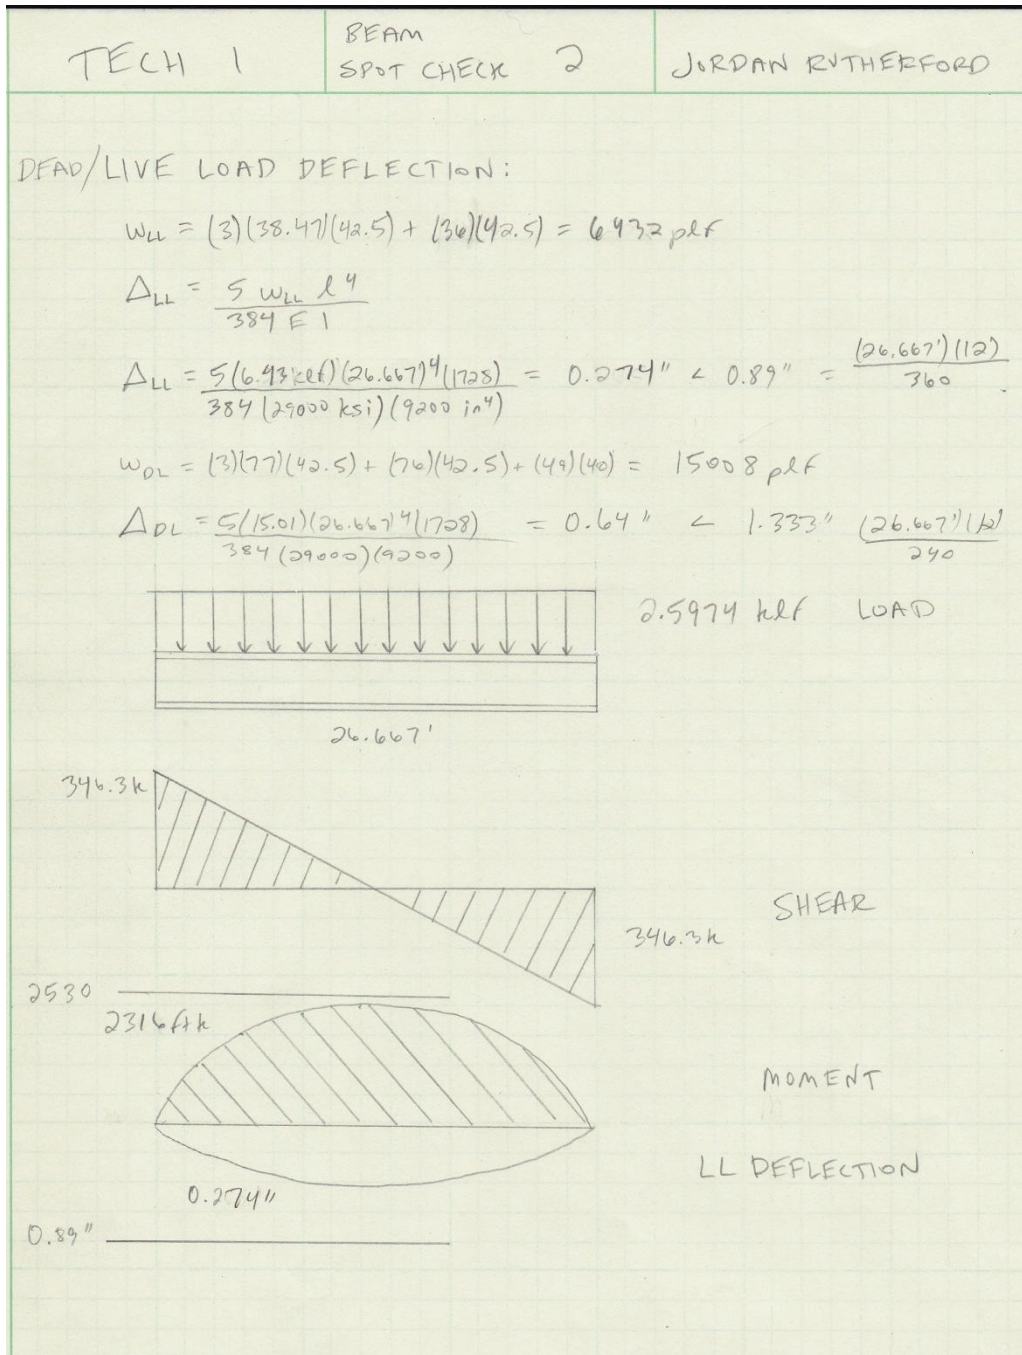 TECH 1
BEAM
SPOT CHECK 2
JORDAN RUTHERFORD
DEAD/LIVE LOAD DEFLECTION:
W_LL = (3)(38.47)(42.5) + (36)(42.5) = 6432 plf
Δ_LL = 5 W_LL l^4 / 384 E I
Δ_LL = 5(6.43 klf)(26.667)^4(1728) / 384(29000 ksi)(9200 in^4) = 0.274" < 0.89" = (26.667')(12) / 360
W_DL = (3)(77)(42.5) + (76)(42.5) + (49)(40) = 15008 plf
Δ_DL = 5(15.01)(26.667)^4(1728) / 384(29000)(9200) = 0.64" < 1.333" (26.667')(12) / 240
2.5974 klf LOAD
26.667'
346.3k
346.3k
SHEAR
2530
2316 ftk
MOMENT
LL DEFLECTION
0.274"
0.89"